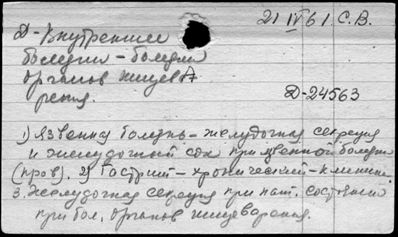 21 IV 61. С.В.
Д-Внутренние
болезни - болезни
органов пищева
рения.
Д-24563
1) Язвенная болезнь - желудочная секреция
и желудочный сок при язвенной болезни
(пров). 2) Гастрит - хронический - клиника
3. Желудочная секреция при пат. состояний
при бол. органов пищеварения.